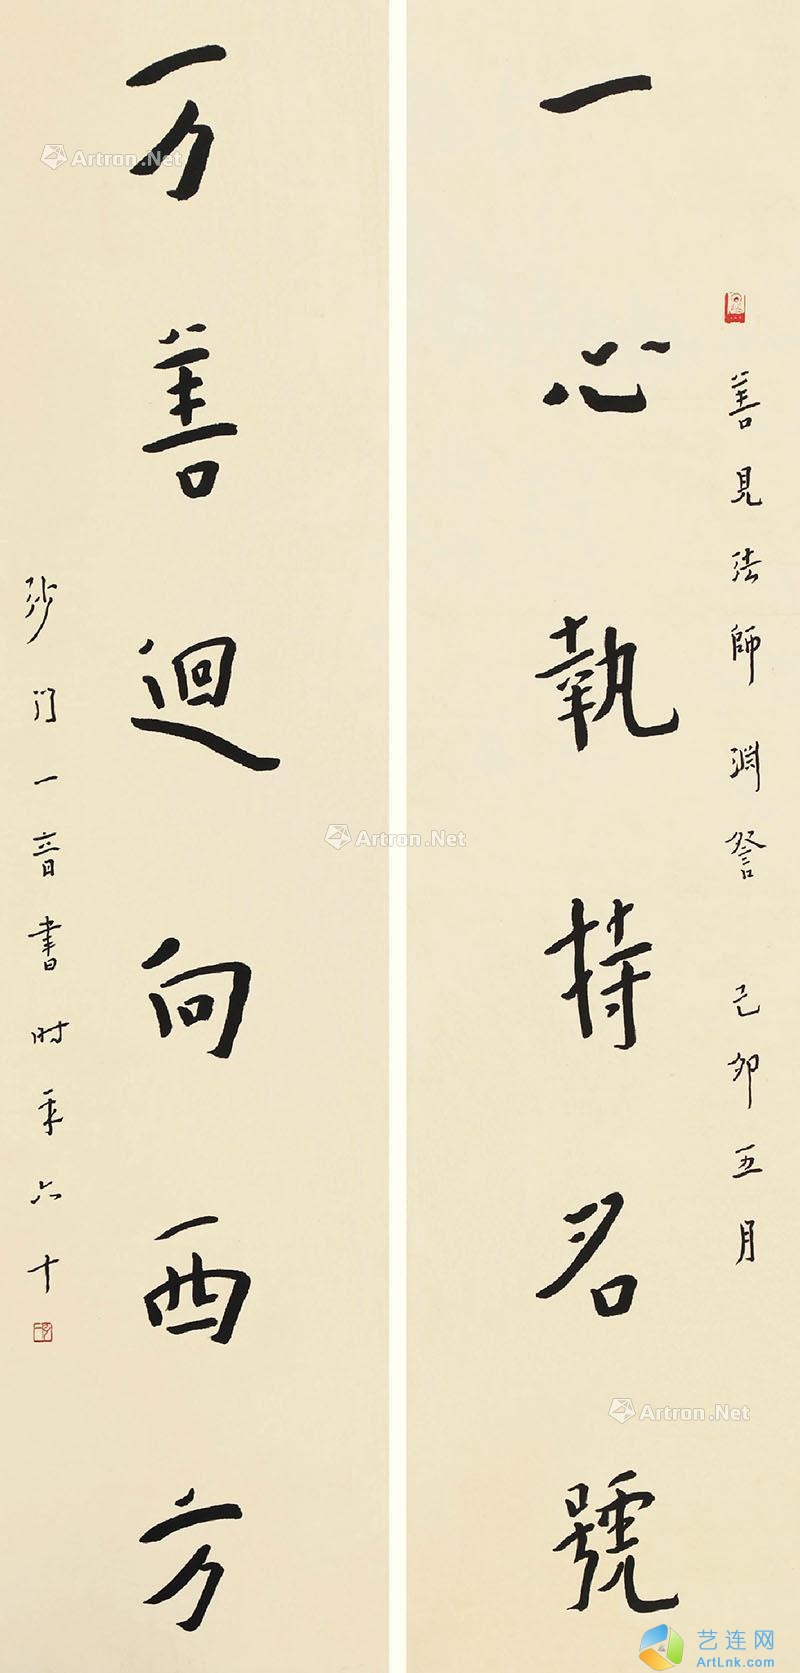 一心執持名號
善見法師淵詧 己卯五月
万善迴向西方
沙门一音書时年六十
Artron.Net
Artron.Net
Artron.Net
艺连网
ArtLnk.com